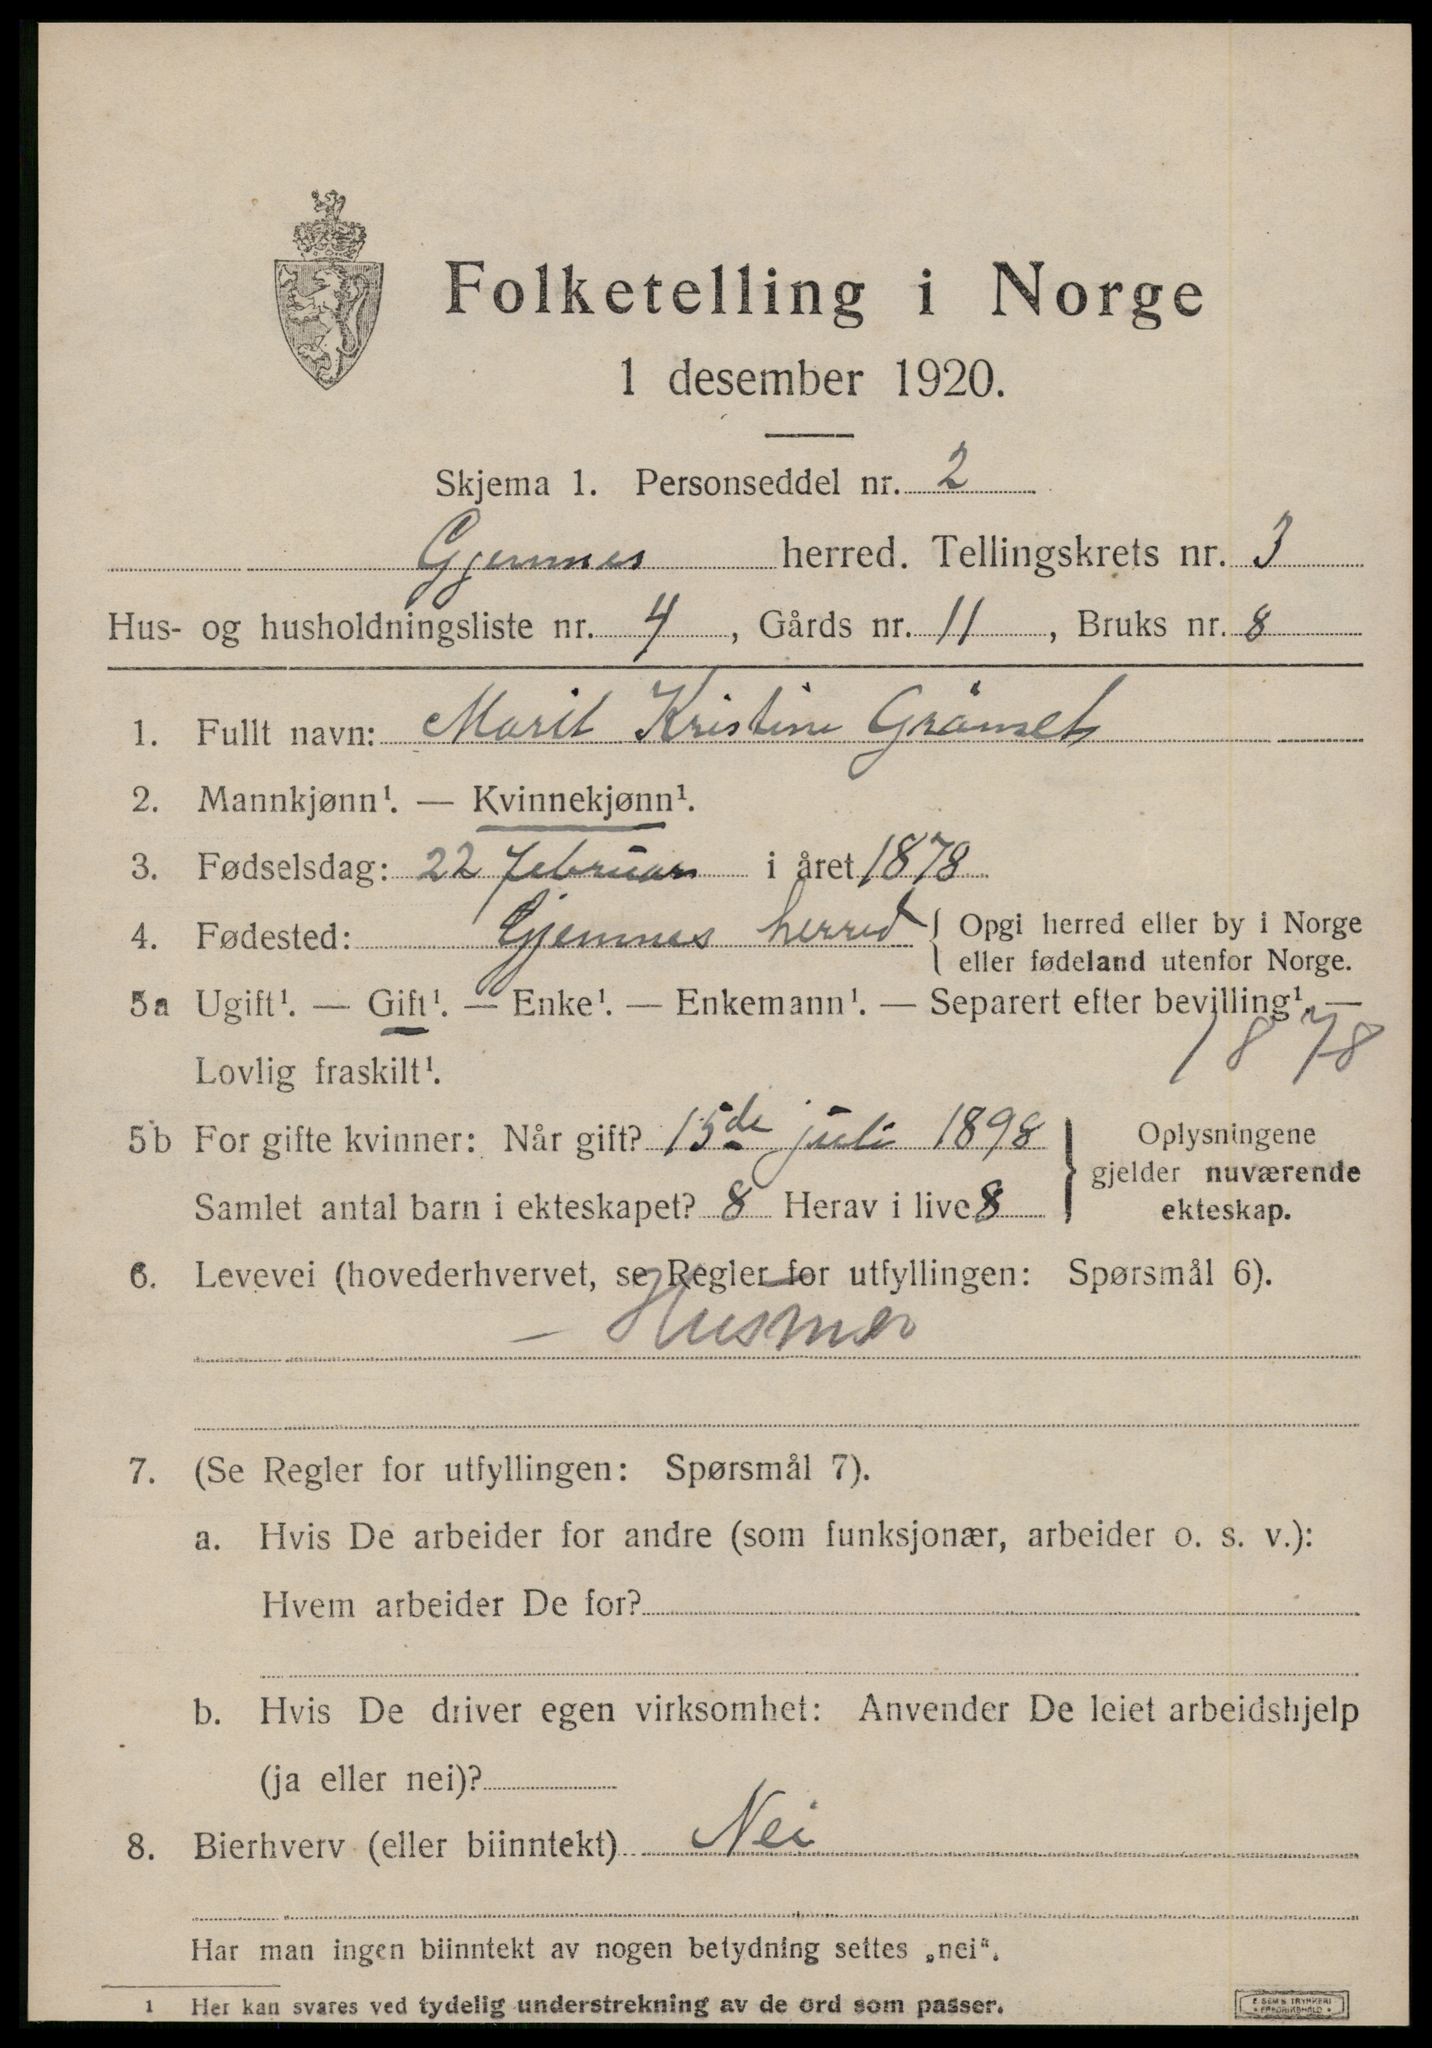 Folketelling i Norge
1 desember 1920.
Skjema 1. Personseddel nr. 2
Gjemnes herred. Tellingskrets nr. 3
Hus- og husholdningsliste nr. 4, Gårds nr. 11, Bruks nr. 8
1. Fullt navn: Marit Kristine Grånset
2. Mannkjønn¹. — Kvinnekjønn¹.
3. Fødselsdag: 22 februar i året 1878
4. Fødested: Gjemnes herred { Opgi herred eller by i Norge
eller fødeland utenfor Norge.
5a Ugift¹. — Gift¹. — Enke¹. — Enkemann¹. — Separert efter bevilling¹. —
Lovlig fraskilt¹.
1878
5b For gifte kvinner: Når gift? 15de juli 1898
Samlet antal barn i ekteskapet? 8 Herav i live 8
} Oplysningene
gjelder nuværende
ekteskap.
6. Levevei (hovederhvervet, se Regler for utfyllingen: Spørsmål 6).
— Husmor
7. (Se Regler for utfyllingen: Spørsmål 7).
a. Hvis De arbeider for andre (som funksjonær, arbeider o. s. v.):
Hvem arbeider De for?
b. Hvis De driver egen virksomhet: Anvender De leiet arbeidshjelp
(ja eller nei)?
8. Bierhverv (eller biinntekt) Nei
Har man ingen biinntekt av nogen betydning settes „nei“.
1 Her kan svares ved tydelig understrekning av de ord som passer.
E. SEM'S TRYKKERI
FREDRIKSHALD